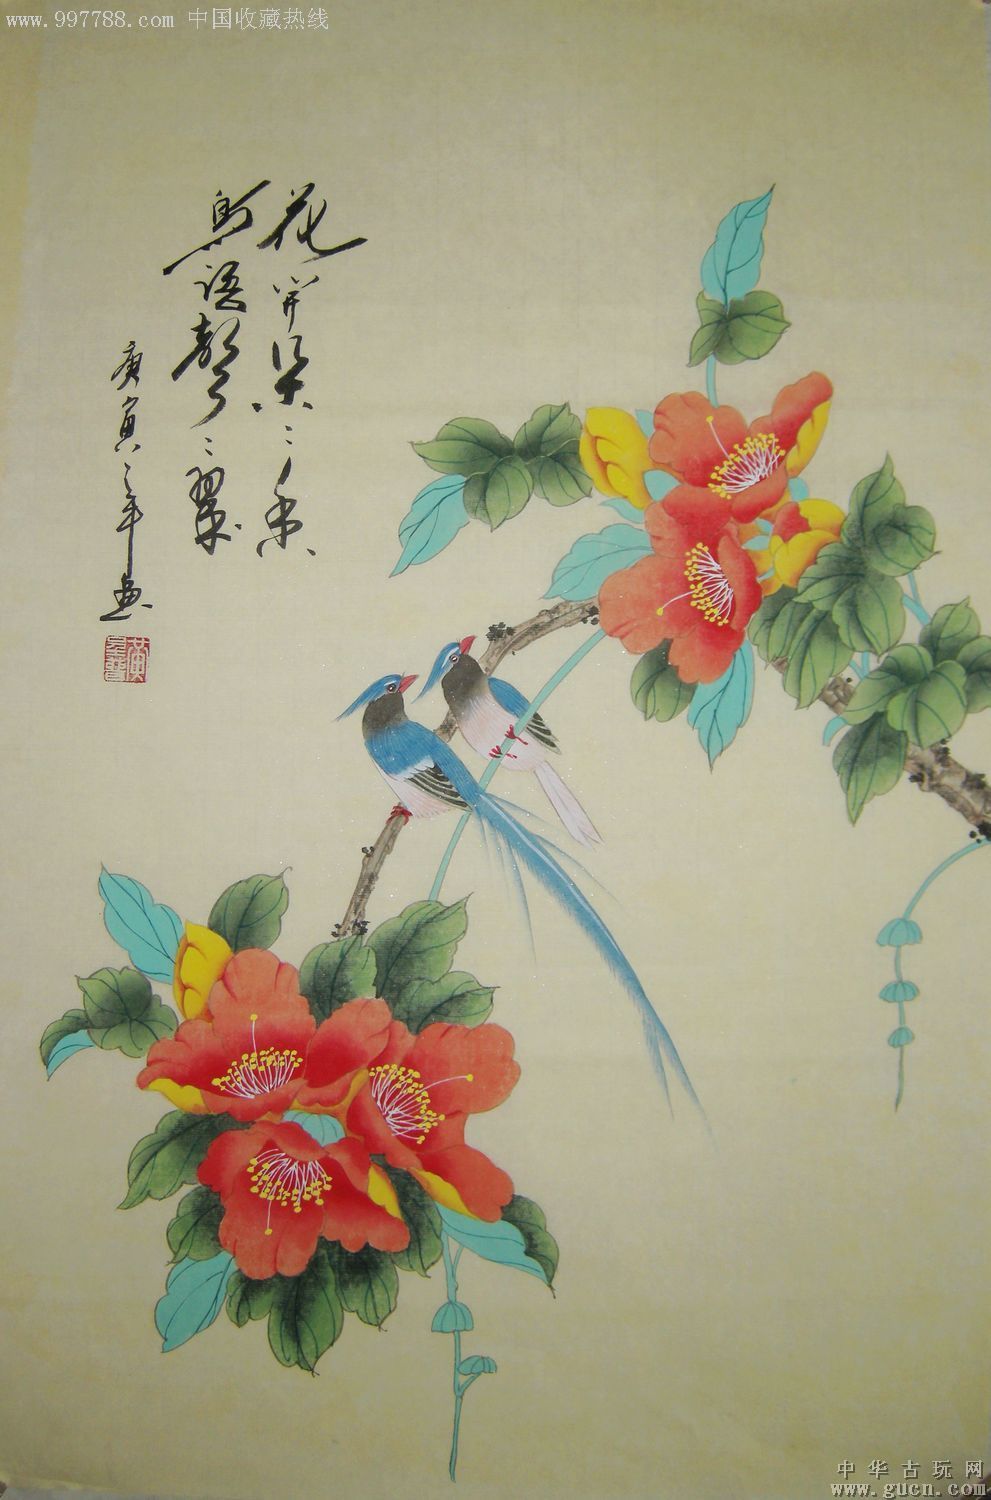 www.997788.com 中国收藏热线
花开朵々香
鸟语声々翠
庚寅年画
中华古玩网
www.gucn.com